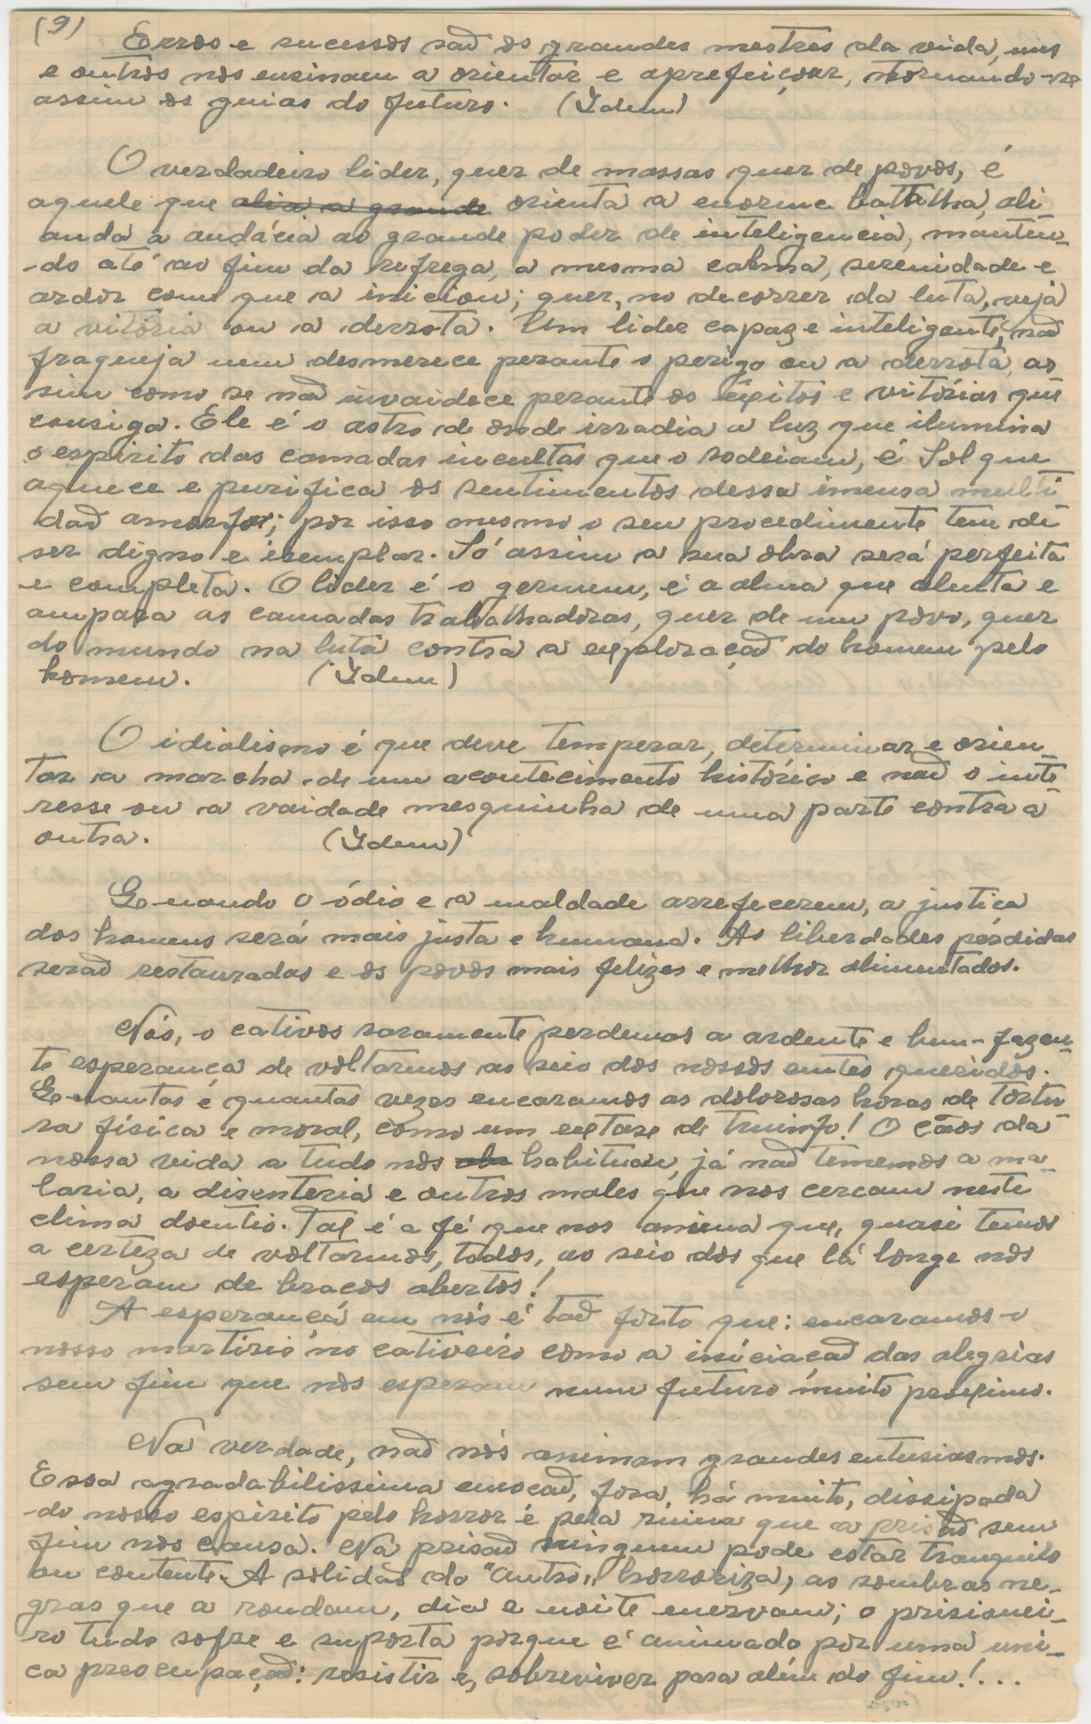 (9)
Erros e sucessos saõ os grandes mestres da vida, uns
e outros nos ensinam a orientar e aprefeiçoar, tornando-se
assim os guias do futuro. (Idem)
O verdadeiro lider, quer de massas quer de povos, é
aquele que alia a grande orienta a enorme batalha, ali-
anda a audácia ao grande poder de inteligencia, manten-
-do até ao fim da refrega, a mesma calma, serenidade e
ardor com que a iniciou; quer, no decorrer da luta, veja
a vitória ou a derrota. Um lider capaz e inteligente, naõ
fraqueja nem desmerece perante o perigo ou a derrota, as
sim como se naõ invaidece perante os êxitos e vitórias que
consiga. Ele é o astro de onde irradia a luz que ilumina
o espirito das camadas incultas que o rodeiam, é Sol que
aquece e purifica os sentimentos dessa imensa multi
daõ amorfa; por isso mesmo o seu procedimento tem de
ser digno e exemplar. Só assim a sua obra será perfeita
e completa. O lider é o germem, é a alma que alenta e
ampara as camadas trabalhadoras, quer de um povo, quer
do mundo na luta contra a exploraçaõ do homem pelo
homem. (Idem)
O idialismo é que deve temperar, determinar e orien-
tar a marcha de um acontecimento histórico e naõ o inte-
resse ou a vaidade mesquinha de uma parte contra a
outra. (Idem)
Quando o ódio e a maldade arrefecerem, a justiça
dos homens será mais justa e humana. As liberdades perdidas
seraõ restauradas e os povos mais felizes e melhor alimentados.
Nós, o cativos raramente perdemos a ardente e bem-fazen-
te esperança de voltarmos ao seio dos nossos entes queridos.
Quantas e quantas vezes encaramos as dolorosas horas de tortu
ra fisica e moral, como um extase de triunfo! O cáos da
nossa vida a tudo nos habituou, já naõ tememos a ma-
laria, a disenteria e outros males que nos cercam neste
clima doentio. Tal é a fé que nos anima que, quasi temos
a certeza de voltarmos, todos, ao seio dos que lá longe nos
esperam de braços abertos!
A esperança em nós é taõ forte que: encaramos o
nosso martirio no cativeiro como a iniciaçaõ das alegrias
sem fim que nos esperam num futuro muito proximo.
Na verdade, naõ nós animam grandes entusiasmos.
Essa agradabilissima emoçaõ, fora, há muito, dissipada
do nosso espirito pelo horror e pela ruina que a prisaõ sem
fim nos causa. Na prisaõ ninguem pode estar tranquilo
ou contente. A solidaõ do "antro" horroriza, as sombras ne-
gras que a rondam, dia e noite enervam; o prisionei-
ro tudo sofre e suporta porque é animado por uma uni-
ca preocupaçaõ: resistir e, sobreviver para além do fim!...